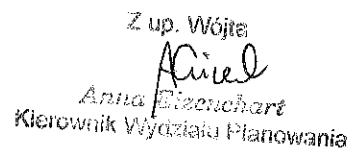 Z up. Wójta
Anna Eizenchart
Kierownik Wydziału Planowania